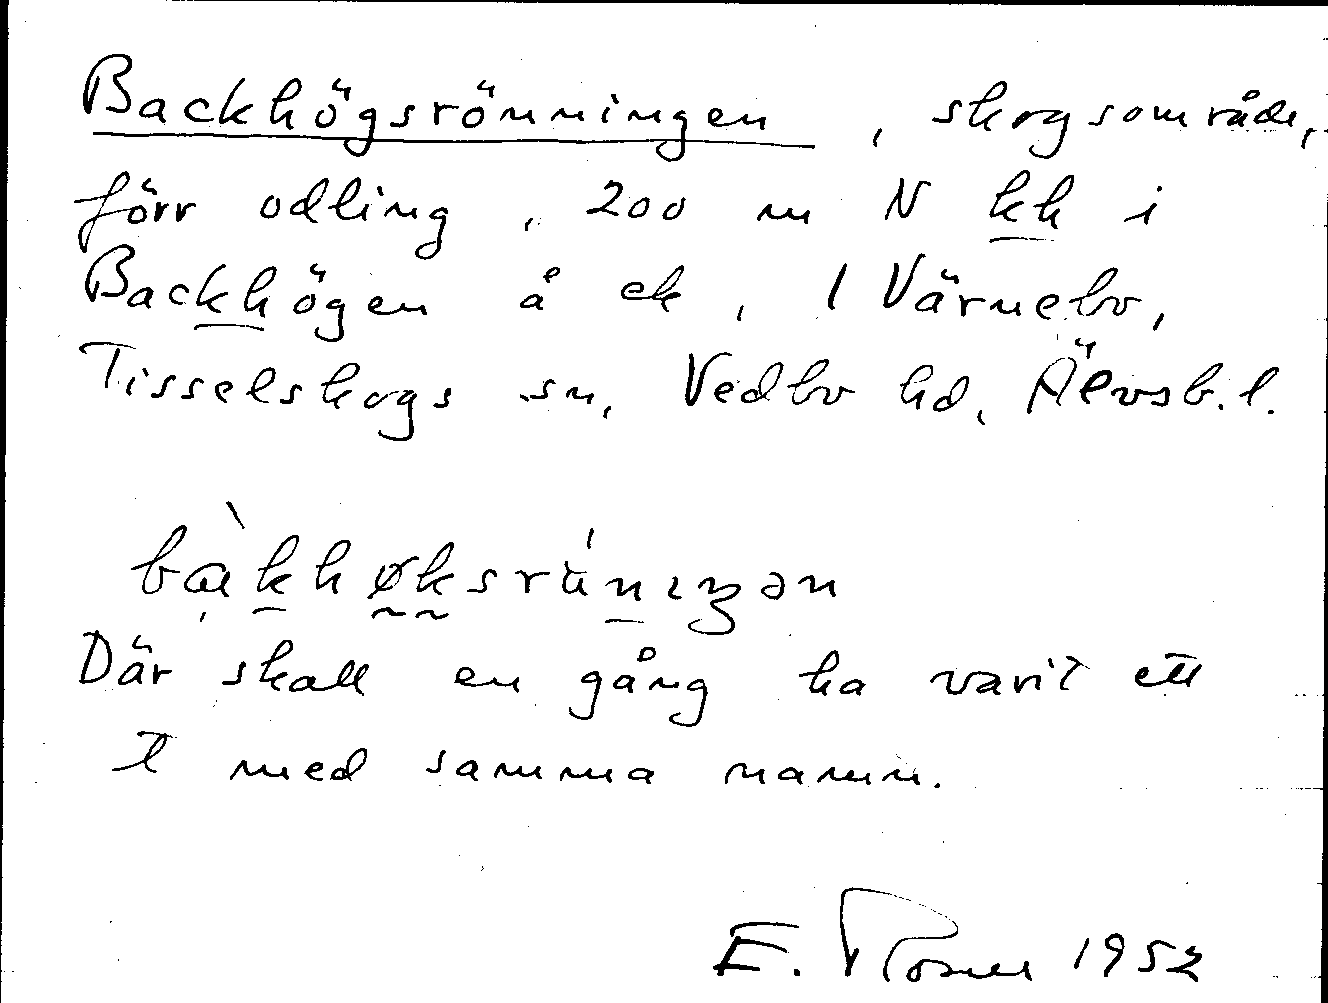 Backhögsrönningen, skogsområde,
förr odling, 200 m N kh i
Backhögen å ek, 1 Värnebo,
Tisselskogs sn, Vedbo hd, Älvsb. l.
Där skall en gång ha varit ett
T med samma namn.
E. 1952